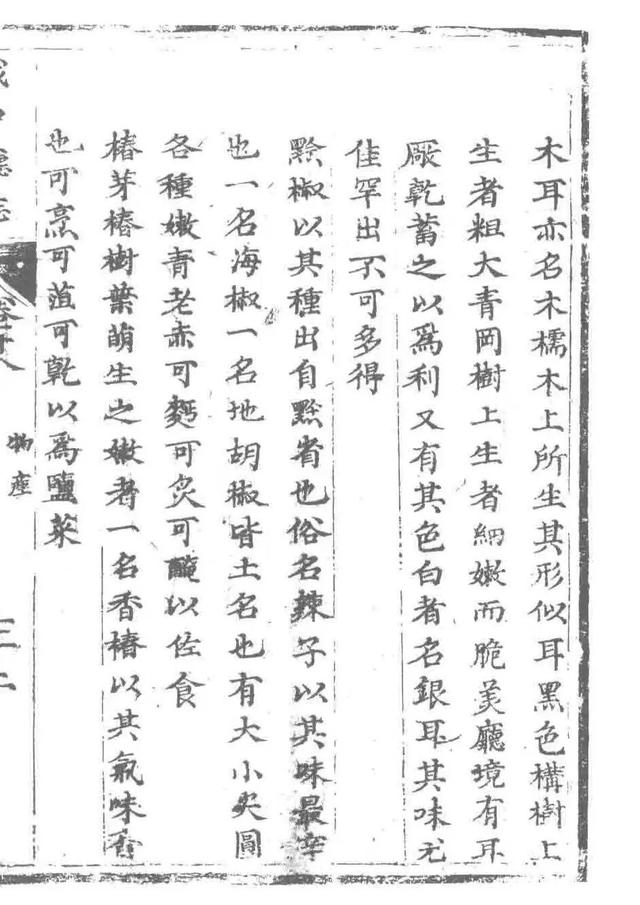 木耳亦名木檽木上所生其形似耳黑色構樹上
生者粗大青岡樹上生者細嫩而脆美廳境有耳
厰乾蓄之以爲利又有其色白者名銀耳其味尤
佳罕出不可多得
黔椒以其種出自黔省也俗名辣子以其味最辛
也一名海椒一名地胡椒皆土名也有大小尖圓
各種嫩青老赤可麪可炙可醃以佐食
椿芽椿樹葉萌生之嫩者一名香椿以其氣味香
也可烹可菹可乾以爲鹽菜
口廳志
卷十八
物產
三十二